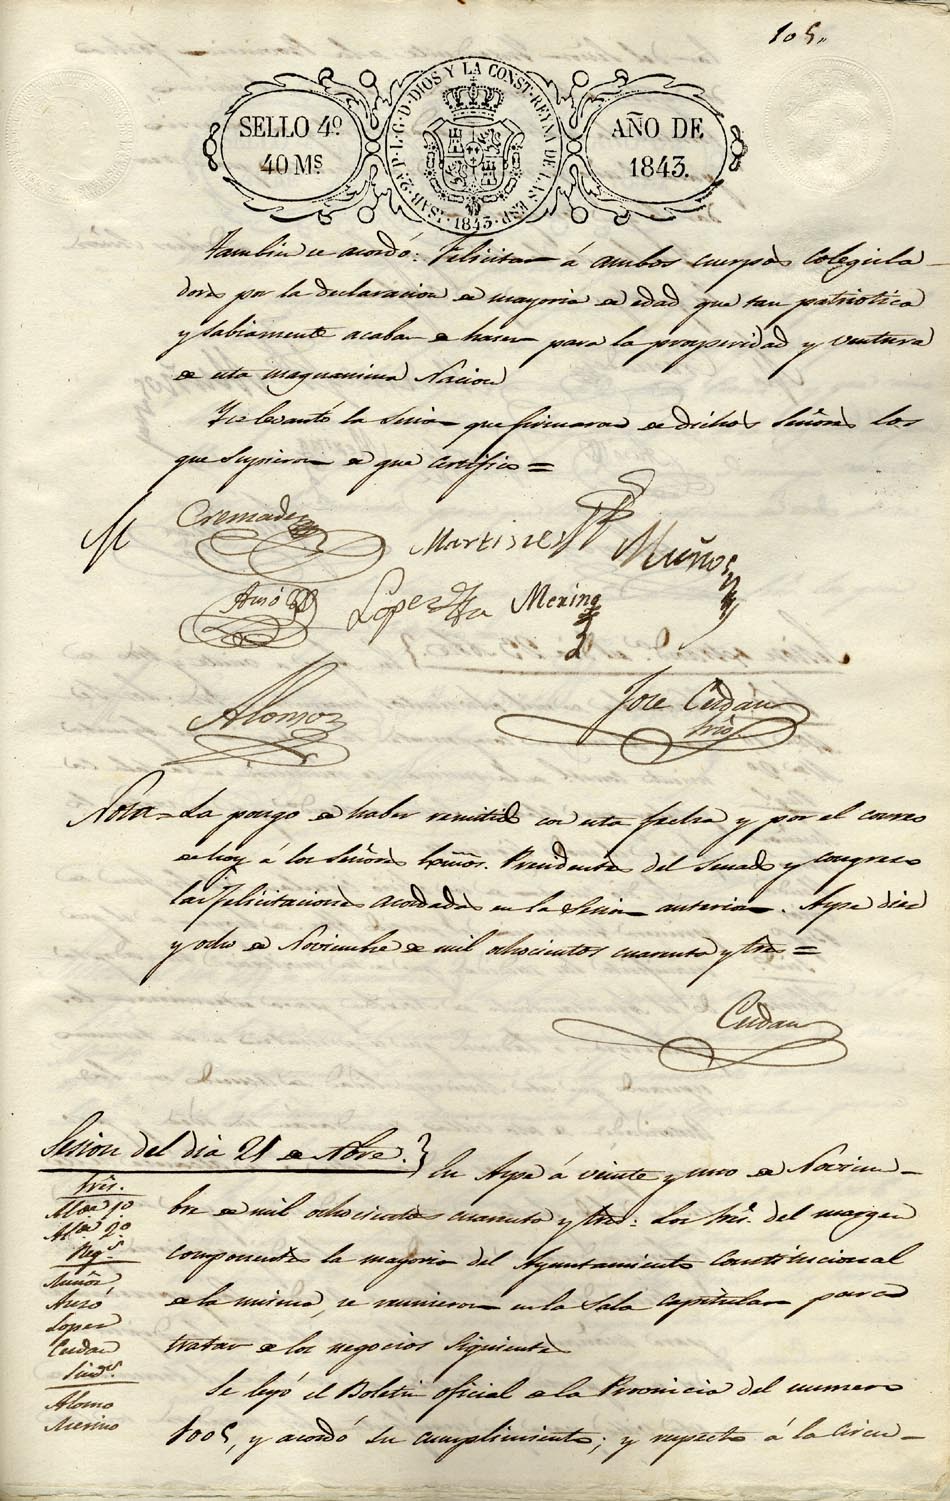 105.
SELLO 4º
40 Ms.
ISAB. 2ª P. L. G. D. DIOS Y LA CONST. REYNA DE LAS ESP.
1843
AÑO DE
1843.
Tambien se acordó: Felicitar á ambos cuerpos Colegisla-
dores por la declaracion de mayoria de edad que tan patriótica
y sabiamente acaban de hacer para la prosperidad y ventura
de esta magnanima Nacion
Y se levantó la sesion que firmaron de dichos Señores los
que supieron de que certifico =
Cremades
Martinez
Muños
Ausó
Lopez
Merino
Alonso
Jose Cerdan
Srio
Nota - La pongo de haber remitido con esta fecha y por el correo
de hoy á los Señores Exmos. Presidentes del Senado y Congreso
las felicitaciones acordadas en la sesion anterior. Aspe diez
y ocho de Noviembre de mil ochocientos cuarenta y tres =
Cerdan
Sesion del dia 21 de Nbre. } En Aspe á veinte y uno de Noviem-
bre de mil ochocientos cuarenta y tres: Los Sres. del margen
componentes la mayoria del Ayuntamiento Constitucional
de la misma, se reunieron en la Sala Capitular para
tratar de los negocios siguientes
Sres.
Alce 1º
Alce 2º
Regs.
Muñoz
Ausó
Lopez
Cerdan
Sindcs.
Alonso
Merino
Se leyó el Boletin oficial de la Provincia del numero
1005, y acordó su cumplimiento; y respecto á la circu-